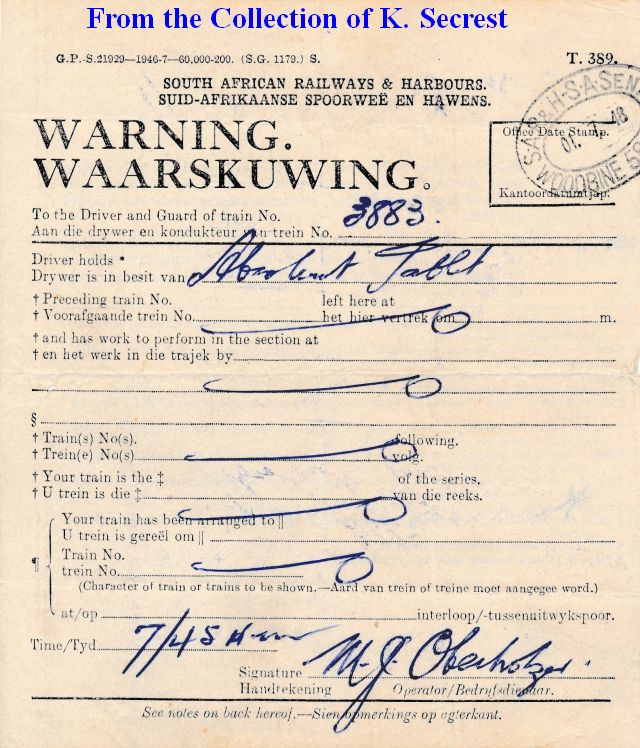 From the Collection of K. Secrest
G.P.-S.21929—1946-7—60,000-200. (S.G. 1179.) S. T. 389.
SOUTH AFRICAN RAILWAYS & HARBOURS.
SUID-AFRIKAANSE SPOORWEË EN HAWENS.
WARNING.
WAARSKUWING.
Office Date Stamp.
Kantoordatumstamp.
WOODBINE
To the Driver and Guard of train No.
Aan die drywer en kondukteur van trein No. 3883.
Driver holds *
Drywer is in besit van Absolute Tablet
† Preceding train No. left here at
† Voorafgaande trein No. het hier vertrek om m.
† and has work to perform in the section at
† en het werk in die trajek by
§
† Train(s) No(s). following.
† Trein(e) No(s) volg.
† Your train is the ‡ of the series.
† U trein is die ‡ van die reeks.
Your train has been arranged to ||
U trein is gereël om ||
¶ Train No.
trein No.
(Character of train or trains to be shown.—Aard van trein of treine moet aangegee word.)
at/op interloop/-tussenuitwykspoor.
Time/Tyd 7/45
Signature M. J. Oberholzer.
Handtekening Operator/Bedryfsdienaar.
See notes on back hereof.—Sien opmerkings op agterkant.